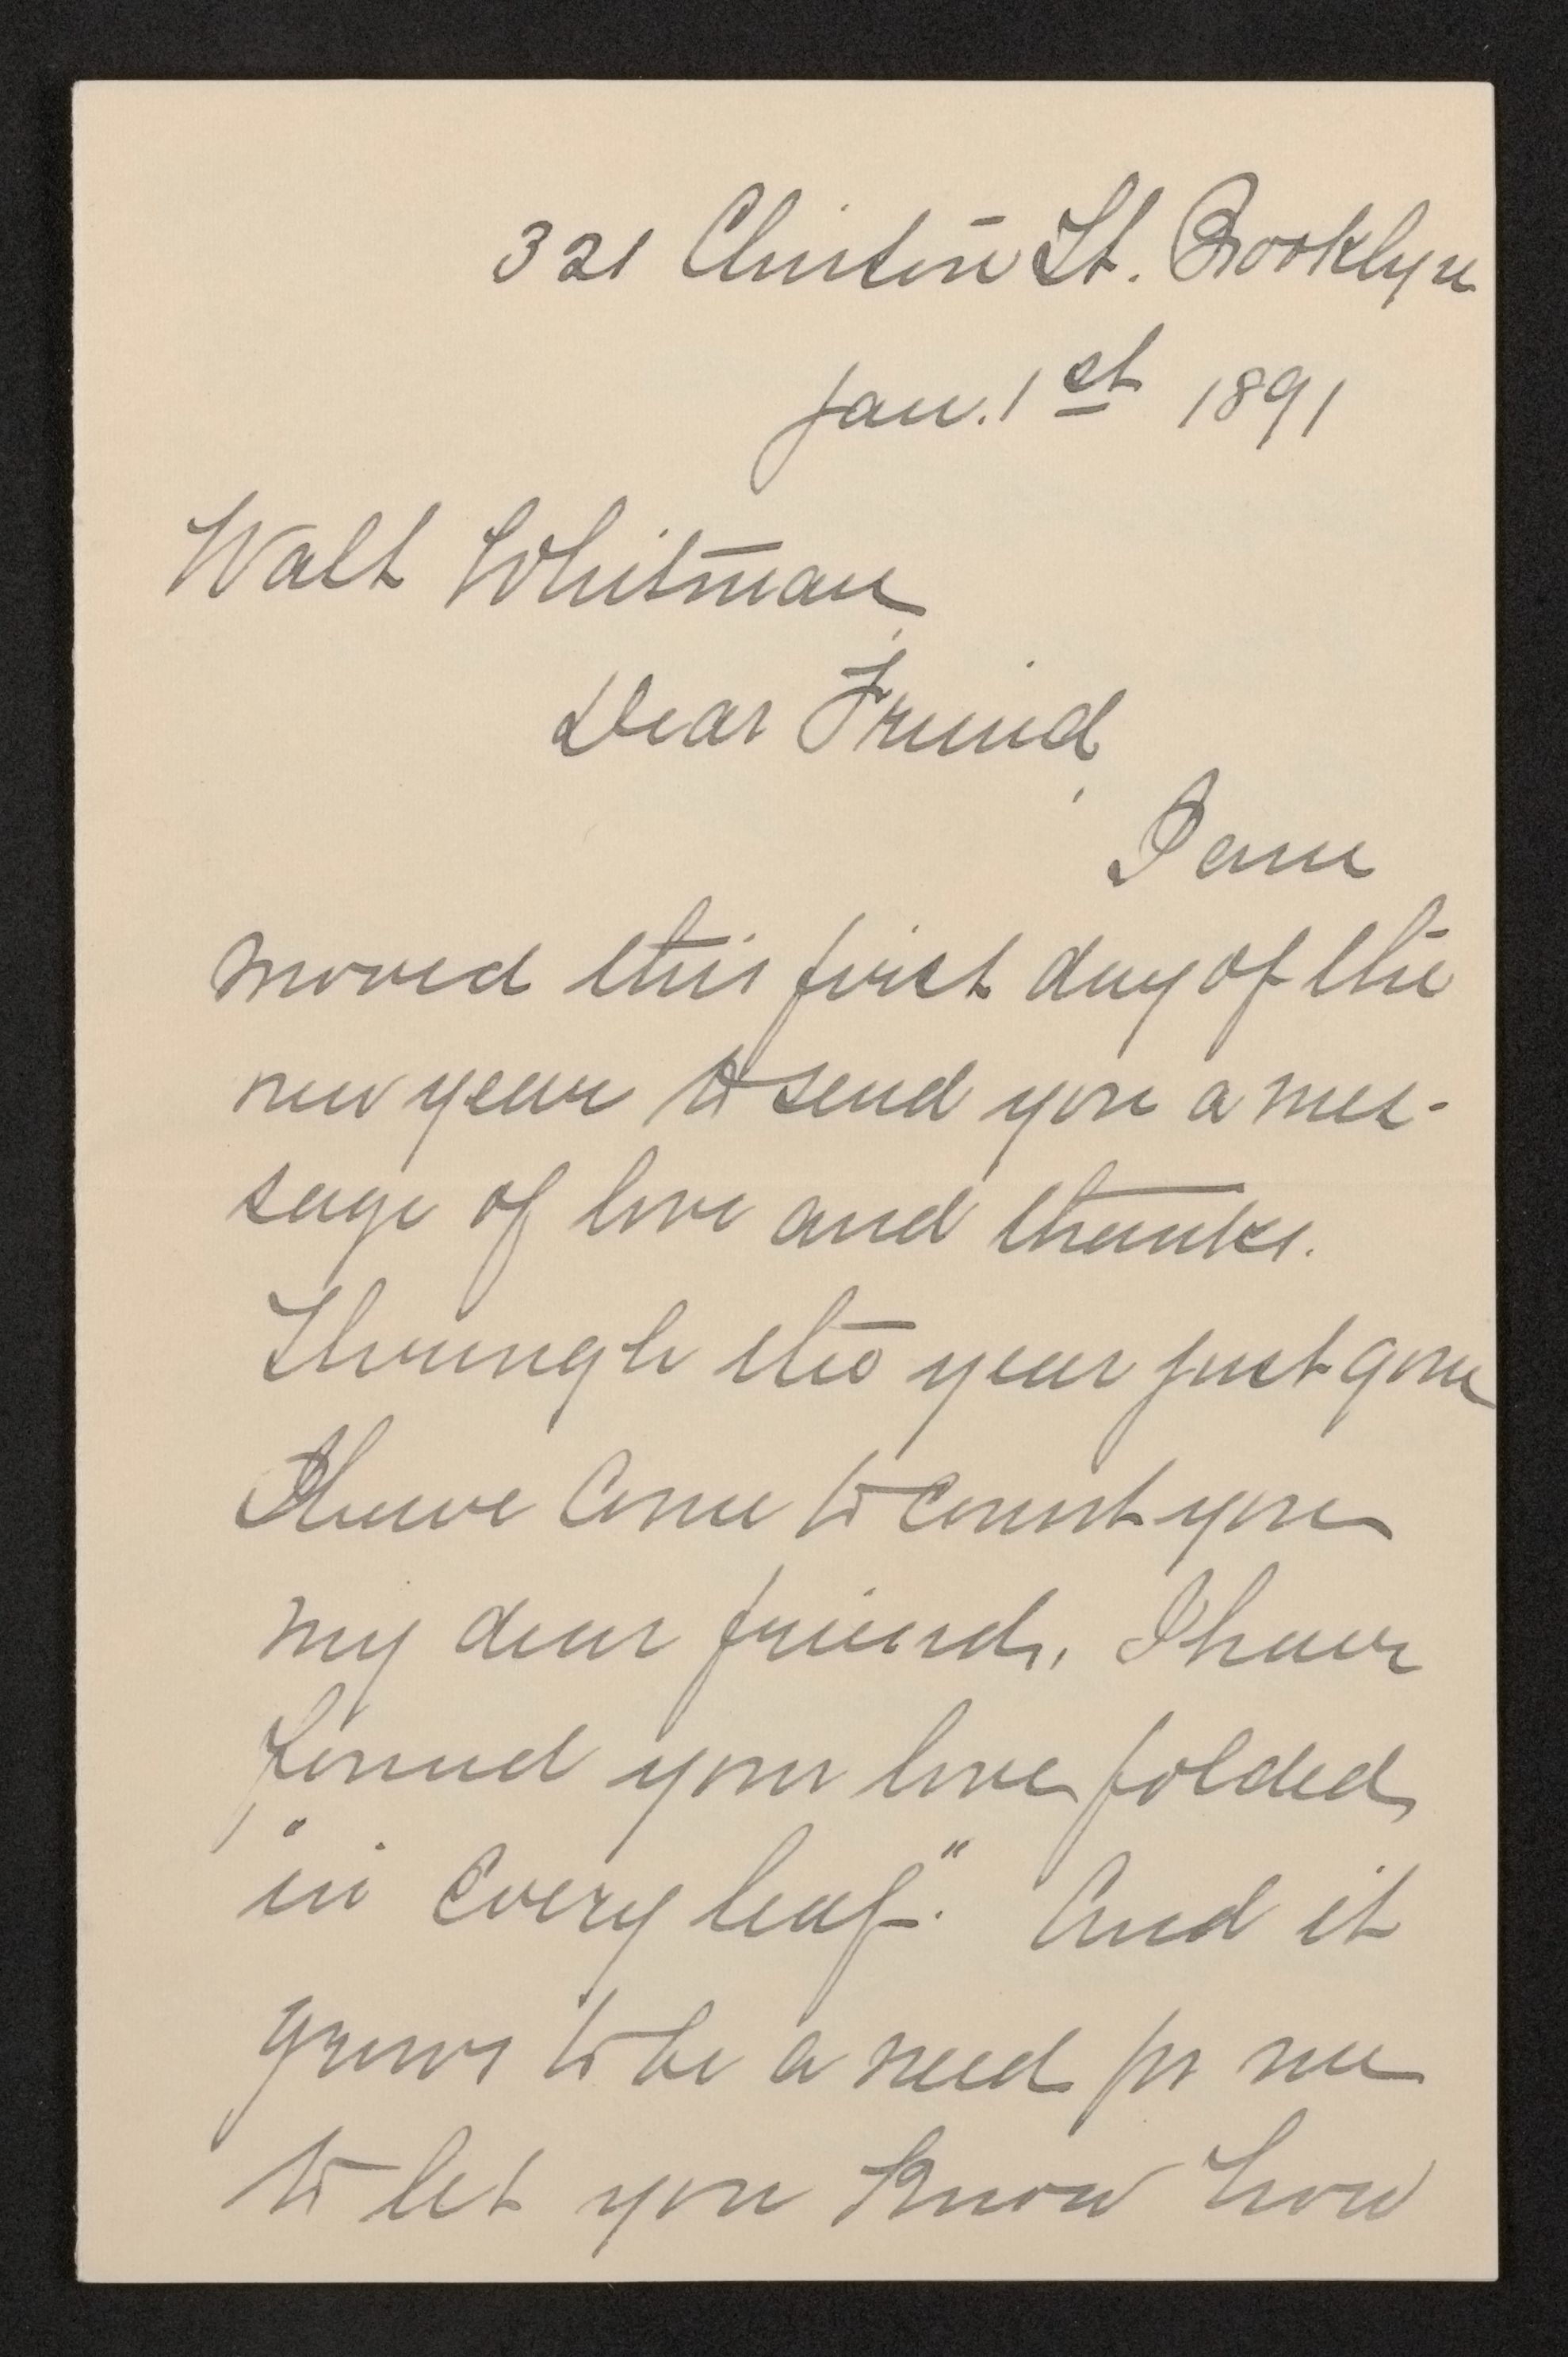 321 Clinton St. Brooklyn
Jan. 1st 1891
Walt Whitman,
Dear Friend,
I am
moved this first day of the
new year to send you a mes-
sage of love and thanks.
Through the year just gone
I have come to count you
my dear friend, I have
found your love folded,
"in every leaf." And it
grows to be a need for me
to let you know how